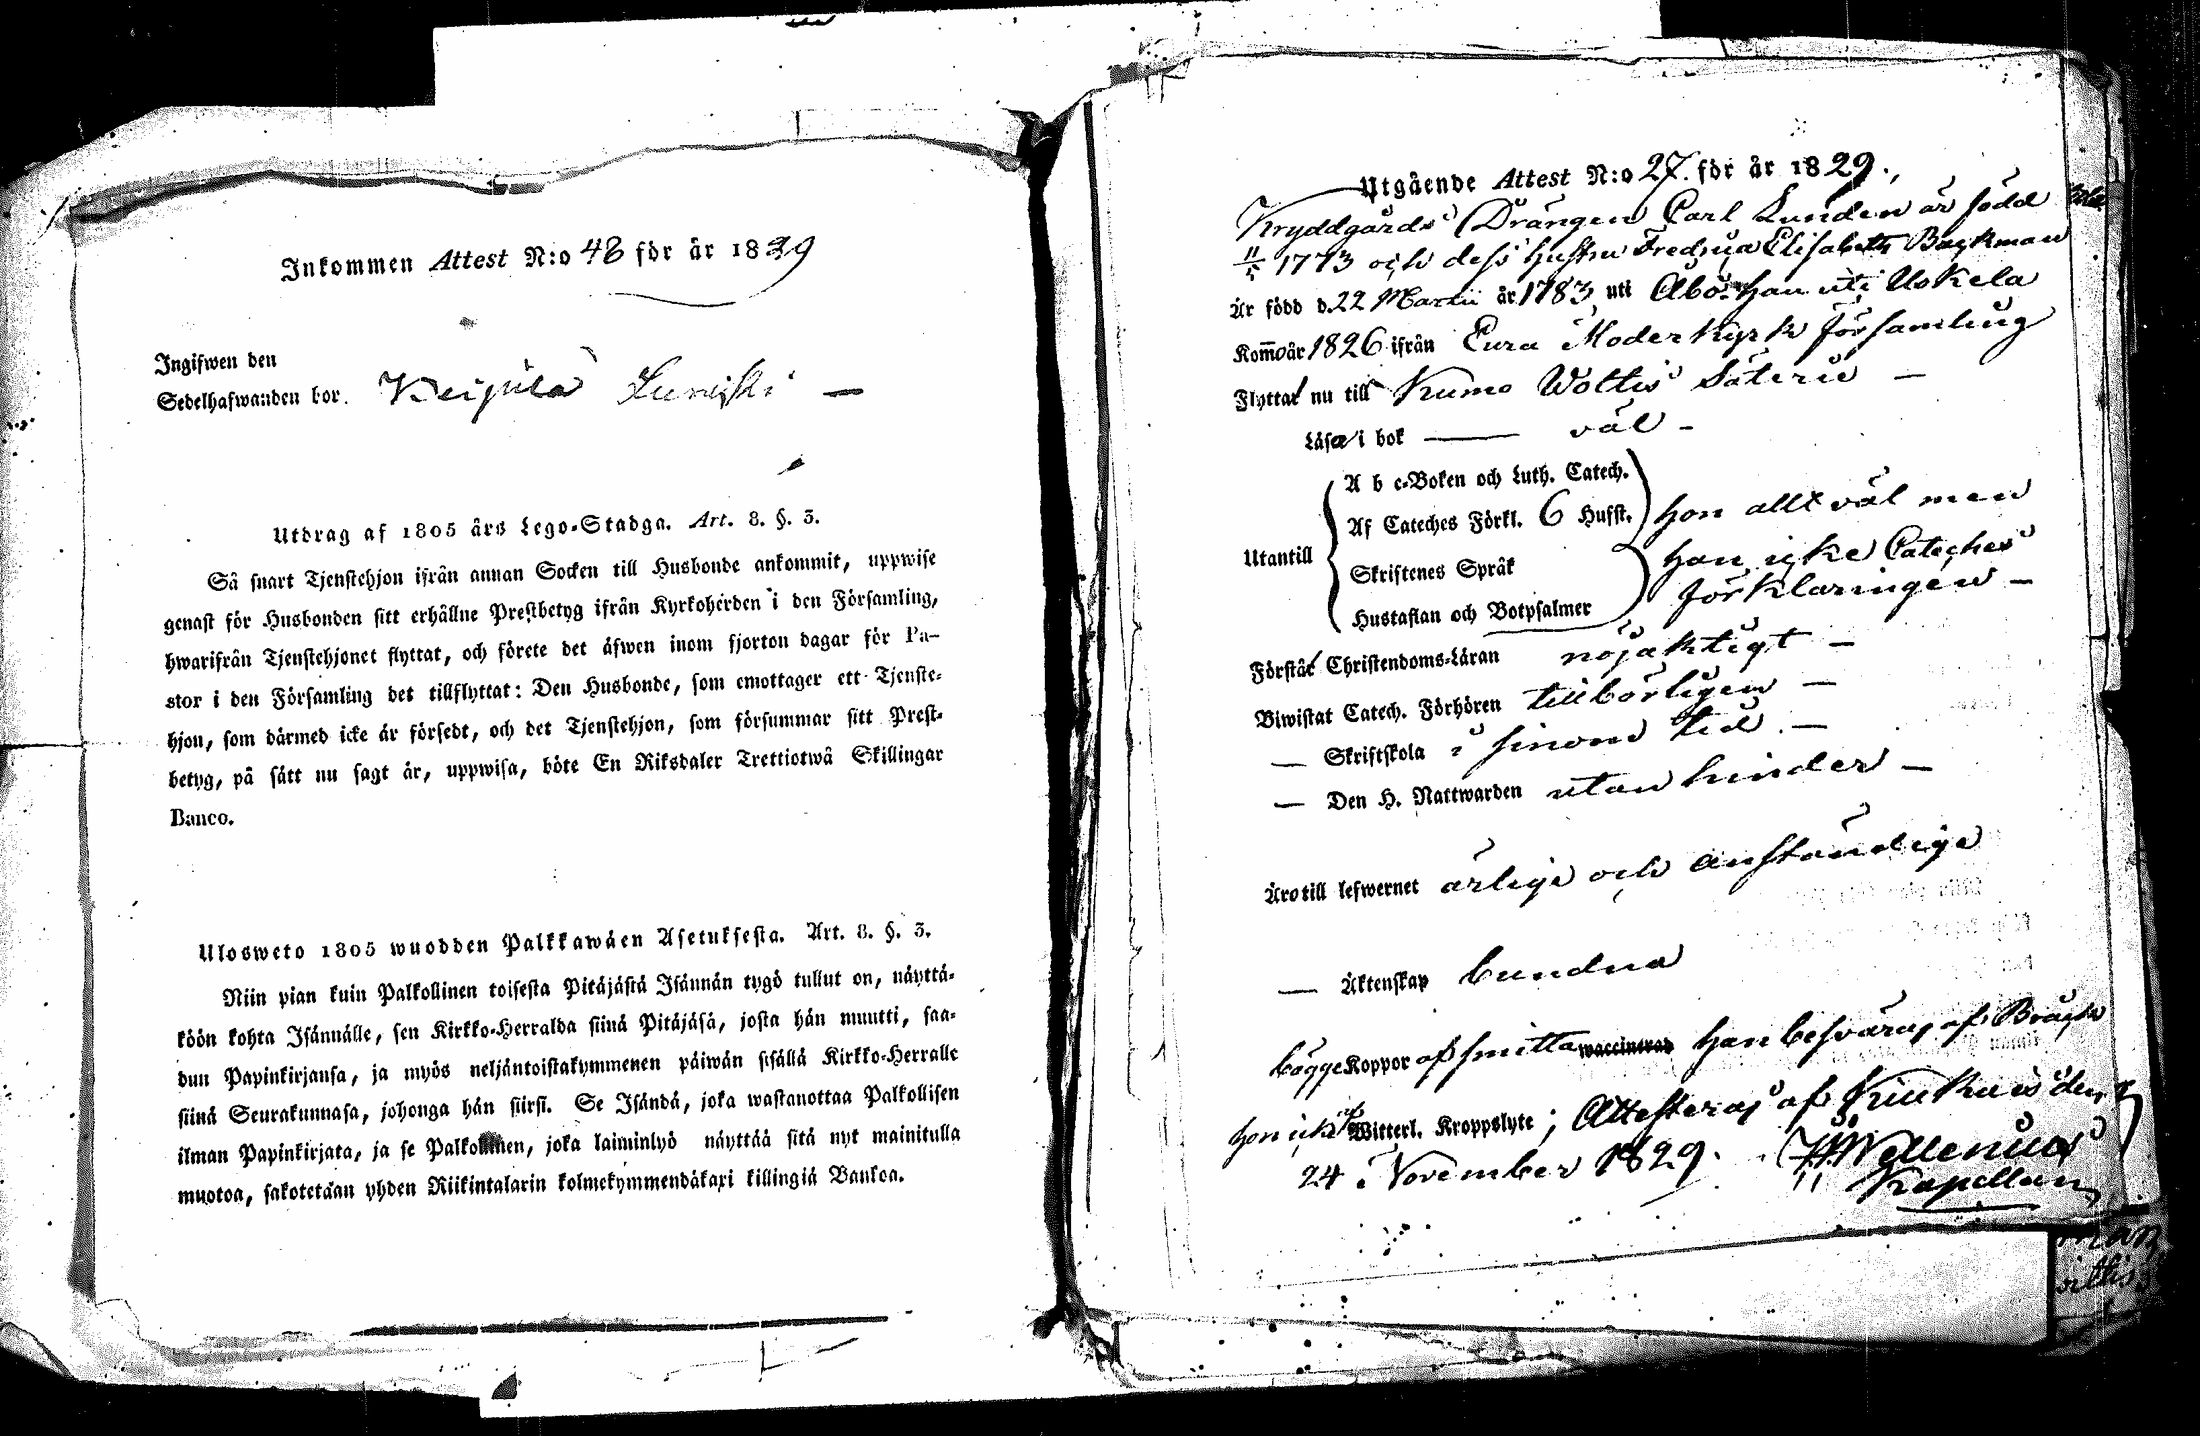 Inkommen Attest N:o 48 för år 1829
Ingifwen den
Sedelhafwanden bor.
Utdrag af 1805 års Lego-Stadga. Art. 8. §. 3.
Så snart Tjenstehjon ifrån annan Socken till Husbonde ankommit, uppwise
genast för Husbonden sitt erhållne Prestbetyg ifrån Kyrkoherden i den Församling,
hwarifrån Tjenstehjonet flyttat, och förete det äfwen inom fjorton dagar för Pa-
stor i den Församling det tillflyttat: Den Husbonde, som emottager ett Tjenste-
hjon, som därmed icke är försedt, och det Tjenstehjon, som försummar sitt Prest-
betyg, på sätt nu sagt är, uppwisa, böte En Riksdaler Trettiotwå Skillingar
Banco.
Ulosweto 1805 wuodden Palkkawäen Asetuksesta. Art. 8. §. 3.
Niin pian kuin Palkollinen toisesta Pitäjästä Isännän tygö tullut on, näyttä-
köön kohta Isännälle, sen Kirkko-Herralda siinä Pitäjäsä, josta hän muutti, saa-
dun Papinkirjansa, ja myös neljäntoistakymmenen päiwän sisällä Kirkko-Herralle
siinä Seurakunnasa, johonga hän siirsi. Se Isändä, joka wastanottaa Palkollisen
ilman Papinkirjata, ja se Palkollinen, joka laiminlyö näyttää sitä nyt mainitulla
muotoa, sakotetaan yhden Riikintalarin kolmekymmendäkaxi killingiä Bankoa.
Utgående Attest N:o 27. för år 1829.
Kryddgårds Drängen Carl Lunden är född
11/5 1773 och dess hustru Fredrica Elisabeth Backman
Är född d. 22 Martii år 1783 uti Åbo. han uti Uskela
Kom̅o år 1826 ifrån Eura Moderkyrk församling
Flyttat nu till Kumo Wottis Säterie —
Läsa i bok — väl —
A b c-Boken och Luth. Catech.
Af Cateches Förkl. 6 Husst. hon allt väl men
Utantill
Skriftenes Språk han icke Cateches
Hustaflan och Botpsalmer förklaringen —
Förstå Christendoms-Läran nöjaktigt —
Biwistat Catech. Förhören tillbörligen —
— Skriftskola i sinom tid. —
— Den H. Nattwarden utan hinder —
Äro till lefwernet ärlige och anständige
— Äktenskap bundna
bägge Koppor af smitta waccinerad han besväras af Bråck
hon icke Witterl. Kroppslyte; Attesteras af Kiukais den
24 November 1829. Wellenius
Kapellan